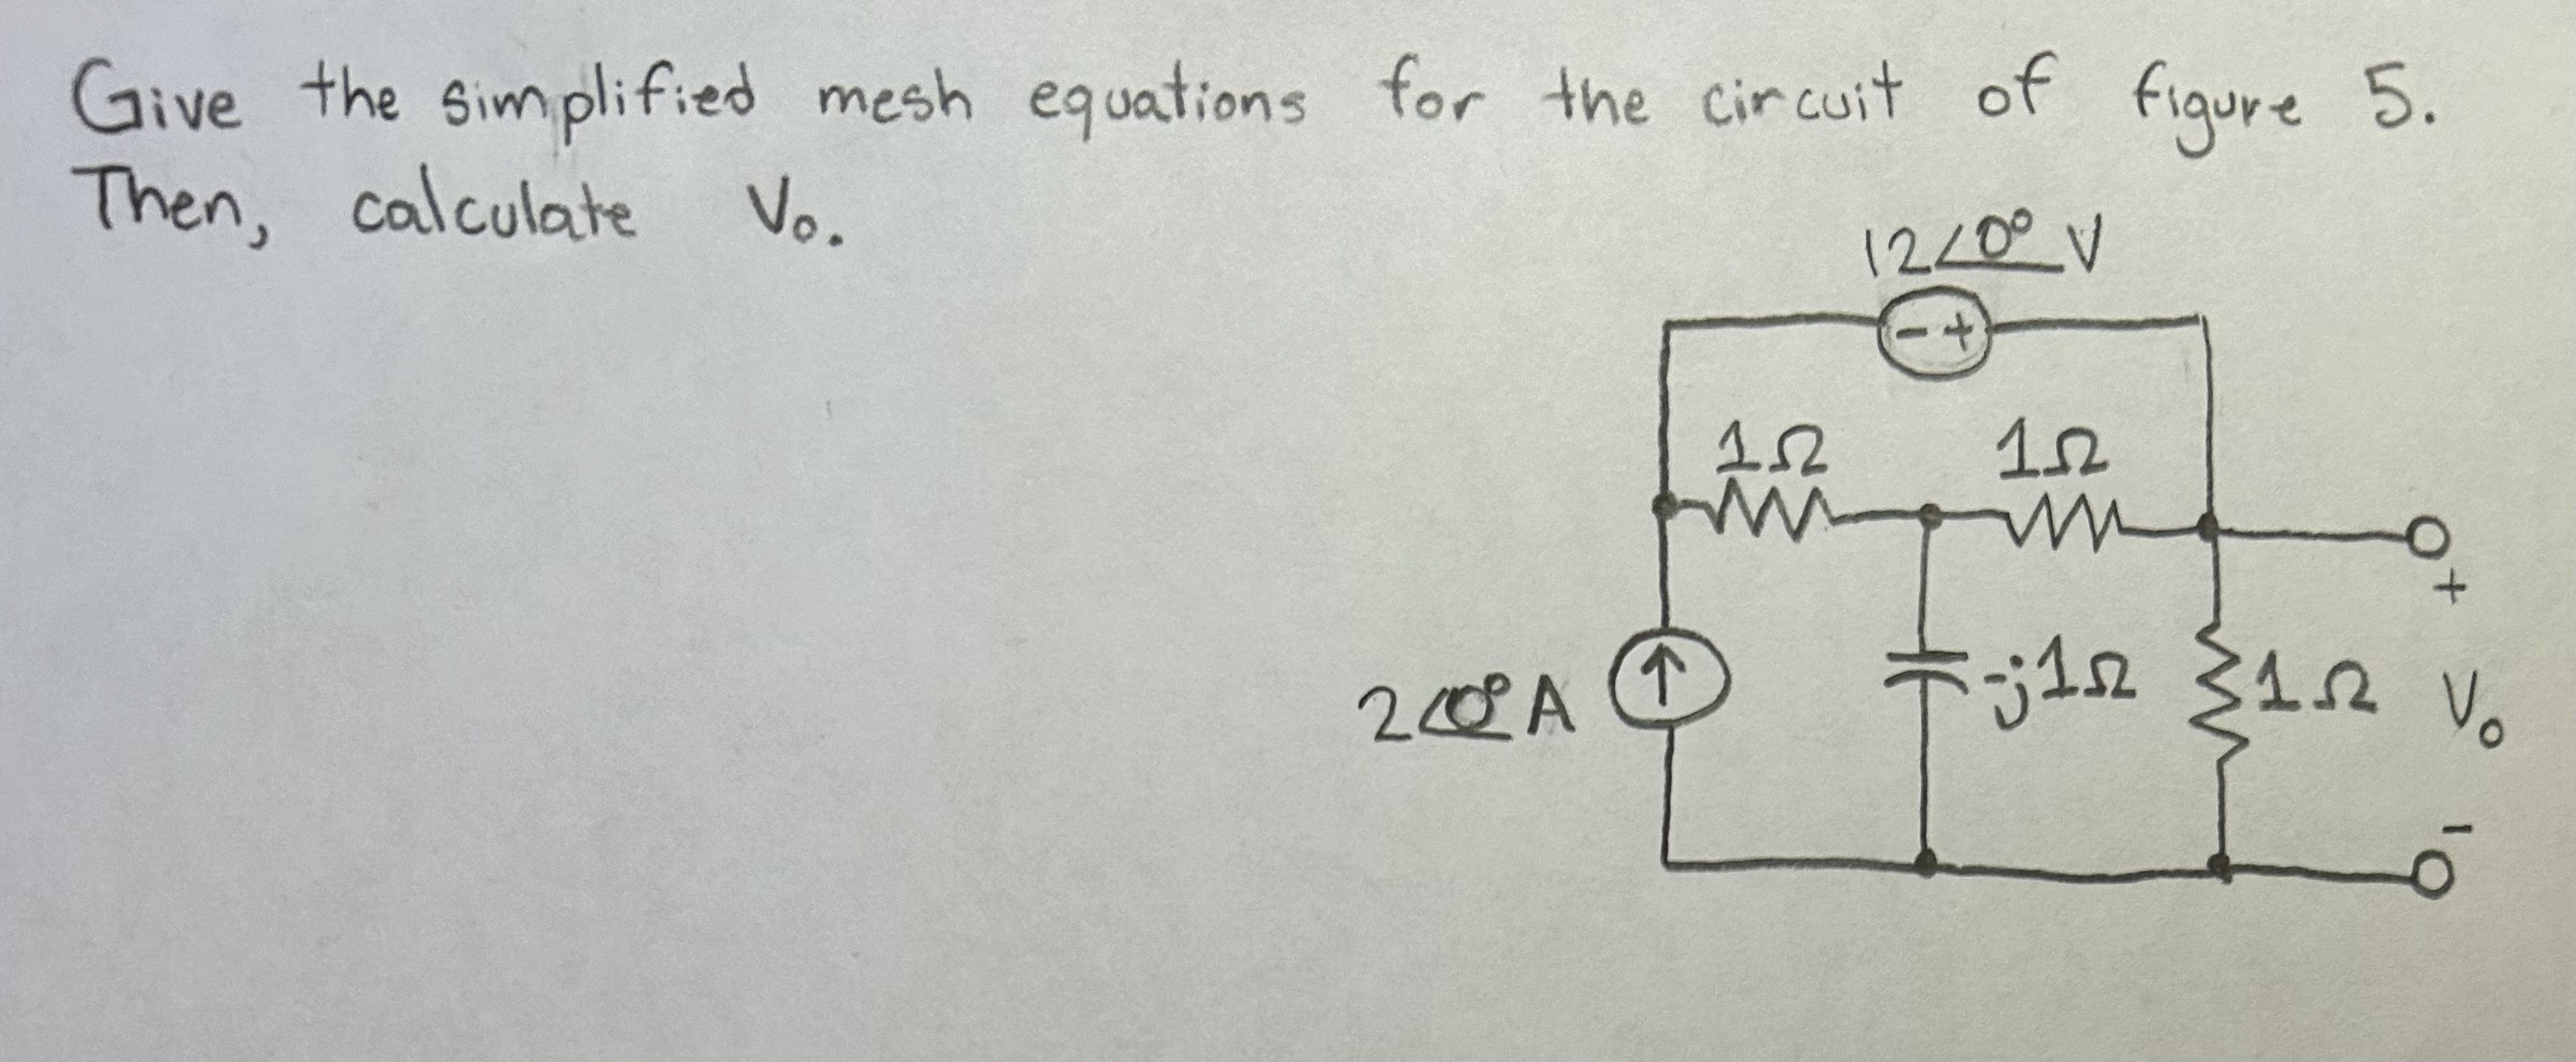 Give the simplified mesh equations for the circuit of figure 5.
Then, calculate Vo.
12∠0° V
- +
1Ω 1Ω
+
2∠0° A
-j1Ω
1Ω
Vo
-